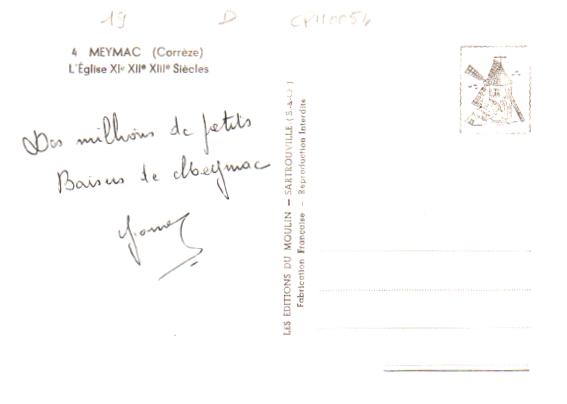 19 D CP110054
4 MEYMAC (Corrèze)
L'Église XIe XIIe XIIIe Siècles
Des millions de petits
Baisers de Meymac
LES EDITIONS DU MOULIN – SARTROUVILLE (S.&O.)
Fabrication Française – Reproduction Interdite